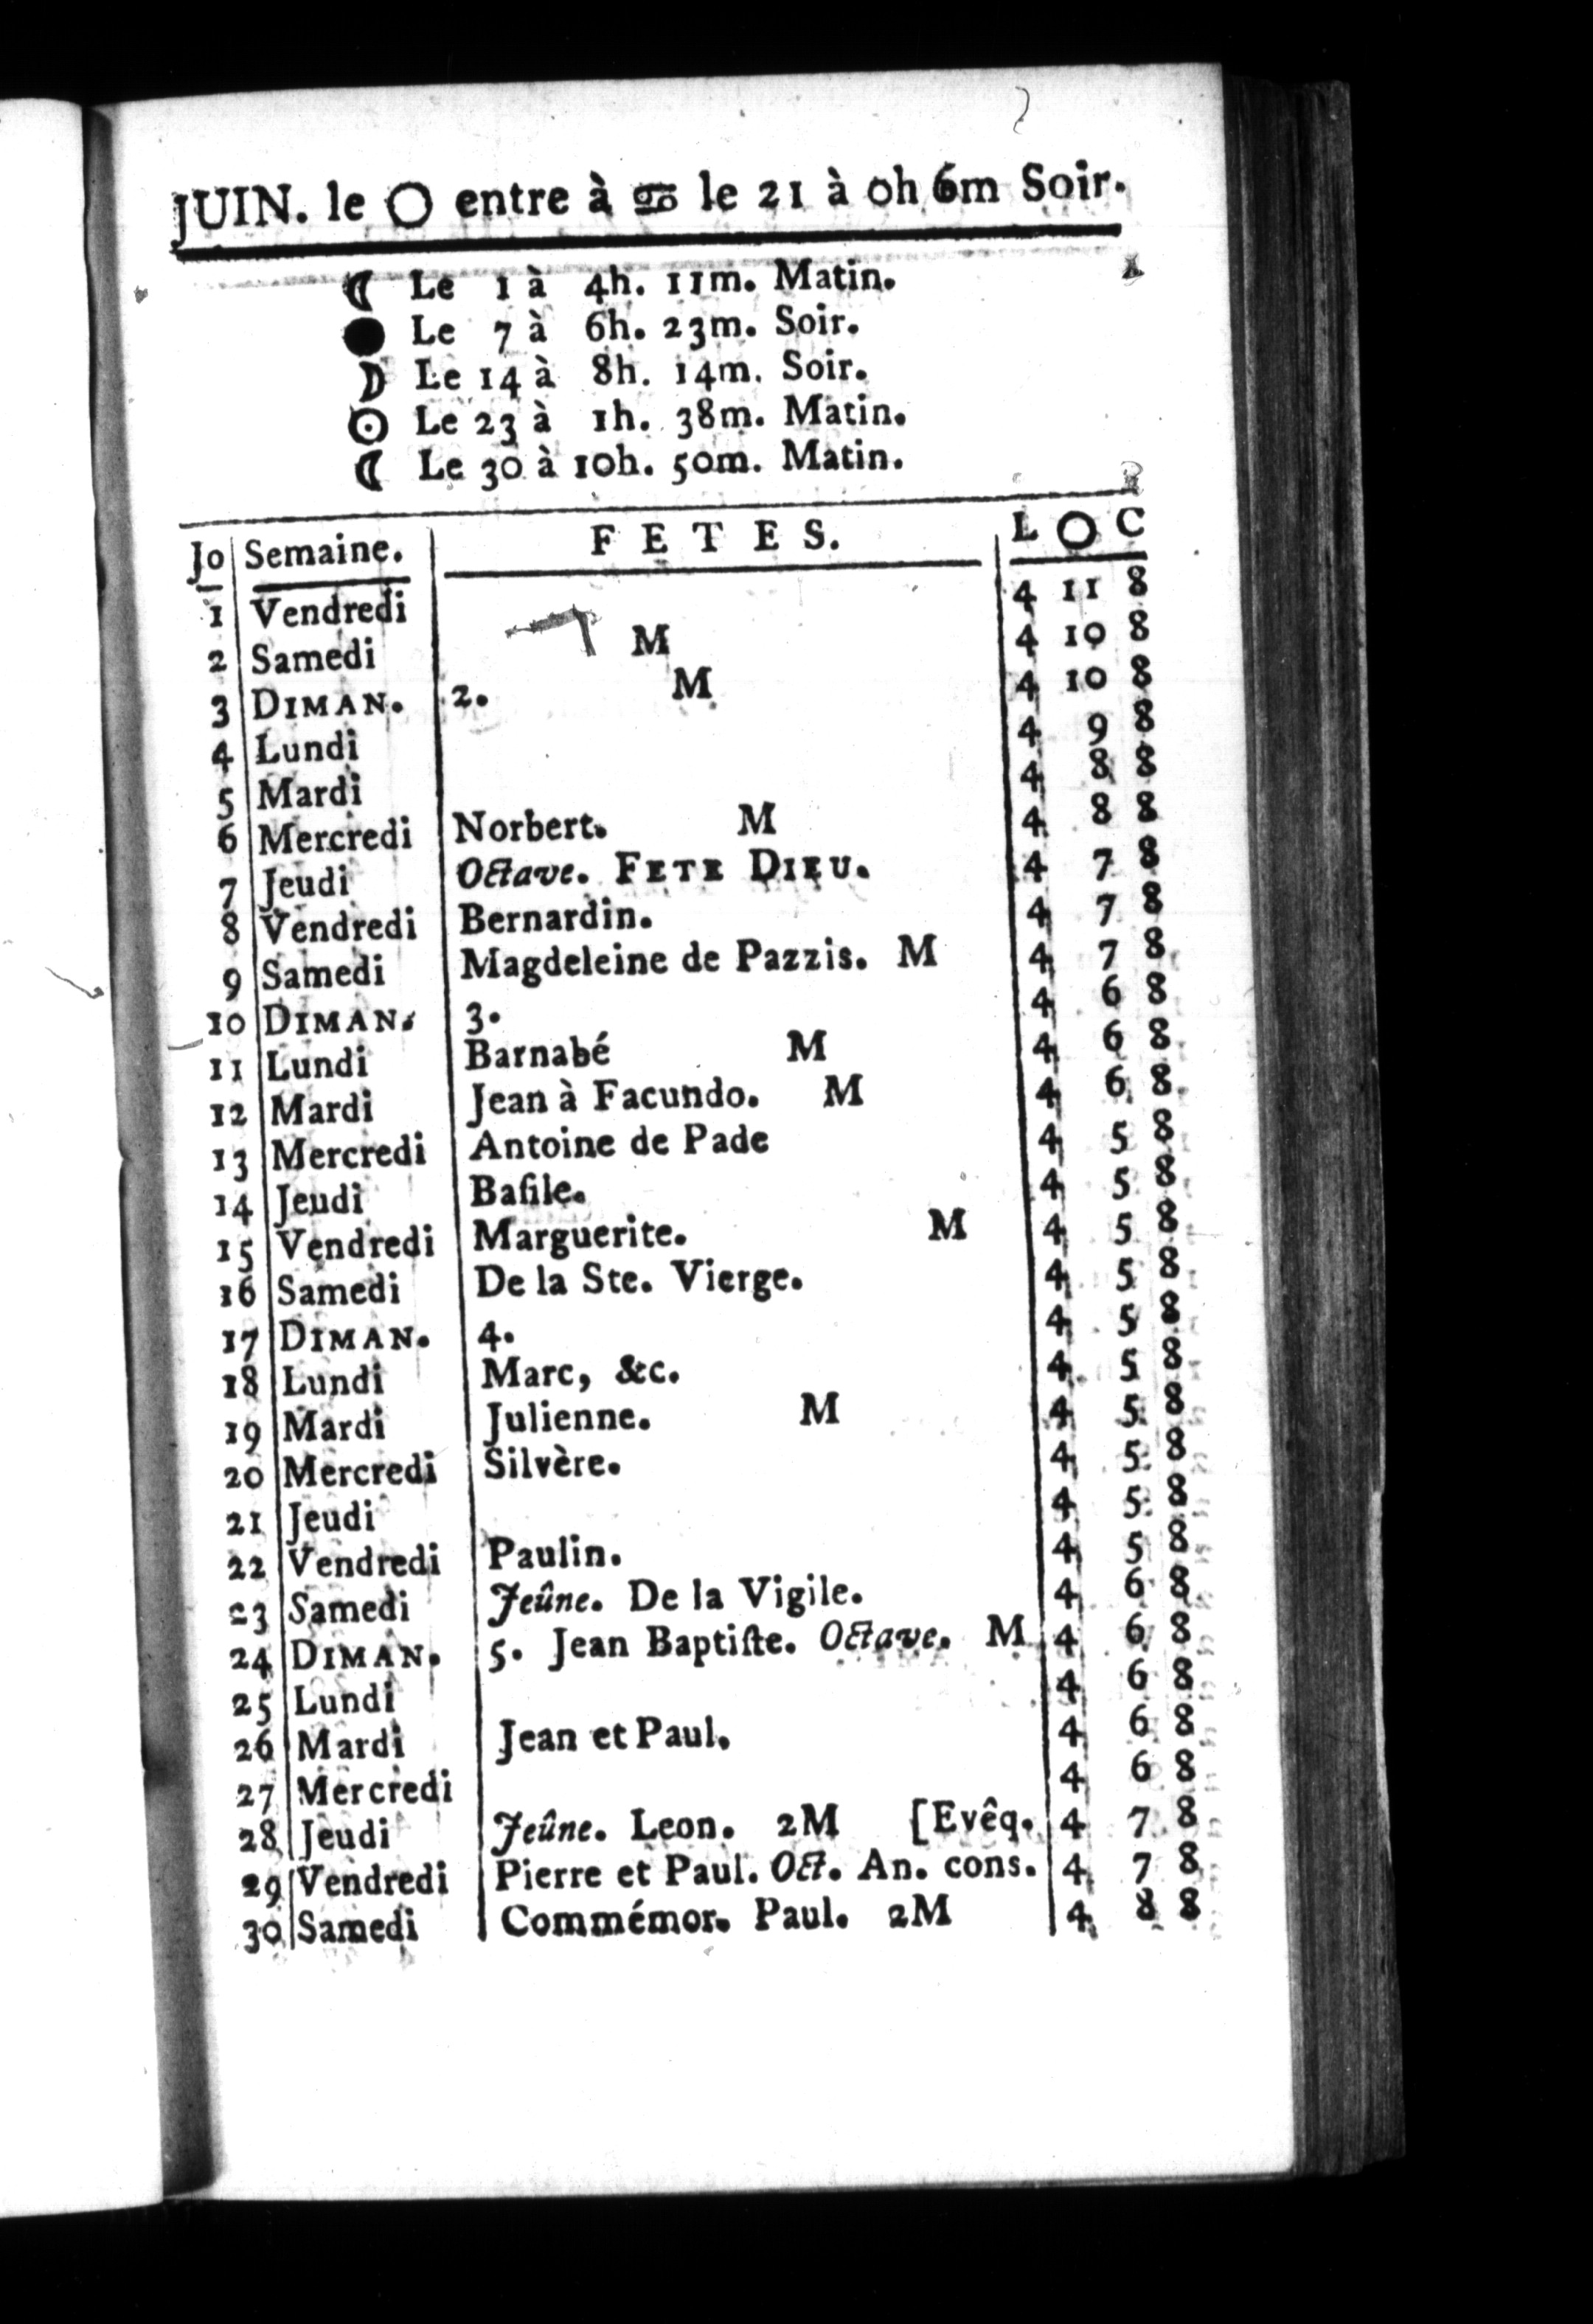 JUIN. le ○ entre à ♋ le 21 à 0h 6m Soir.
☾ Le 1 à 4h. 11m. Matin.
● Le 7 à 6h. 23m. Soir.
☽ Le 14 à 8h. 14m. Soir.
☉ Le 23 à 1h. 38m. Matin.
☾ Le 30 à 10h. 50m. Matin.
Jo Semaine. FETES. L ○ C
1 Vendredi 4 11 8
2 Samedi M 4 10 8
3 DIMAN. 2. M 4 10 8
4 Lundi 4 9 8
5 Mardi 4 8 8
6 Mercredi Norbert. M 4 8 8
7 Jeudi Octave. FETE DIEU. 4 7 8
8 Vendredi Bernardin. 4 7 8
9 Samedi Magdeleine de Pazzis. M 4 7 8
10 DIMAN. 3. 4 6 8
11 Lundi Barnabé M 4 6 8
12 Mardi Jean à Facundo. M 4 6 8
13 Mercredi Antoine de Pade 4 5 8
14 Jeudi Baſile. 4 5 8
15 Vendredi Marguerite. M 4 5 8
16 Samedi De la Ste. Vierge. 4 5 8
17 DIMAN. 4. 4 5 8
18 Lundi Marc, &c. 4 5 8
19 Mardi Julienne. M 4 5 8
20 Mercredi Silvère. 4 5 8
21 Jeudi 4 5 8
22 Vendredi Paulin. 4 5 8
23 Samedi Jeûne. De la Vigile. 4 6 8
24 DIMAN. 5. Jean Baptiſte. Octave. M 4 6 8
25 Lundi 4 6 8
26 Mardi Jean et Paul. 4 6 8
27 Mercredi 4 6 8
28 Jeudi Jeûne. Leon. 2M [Evêq. 4 7 8
29 Vendredi Pierre et Paul. Oct. An. cons. 4 7 8
30 Samedi Commémor. Paul. 2M 4 8 8